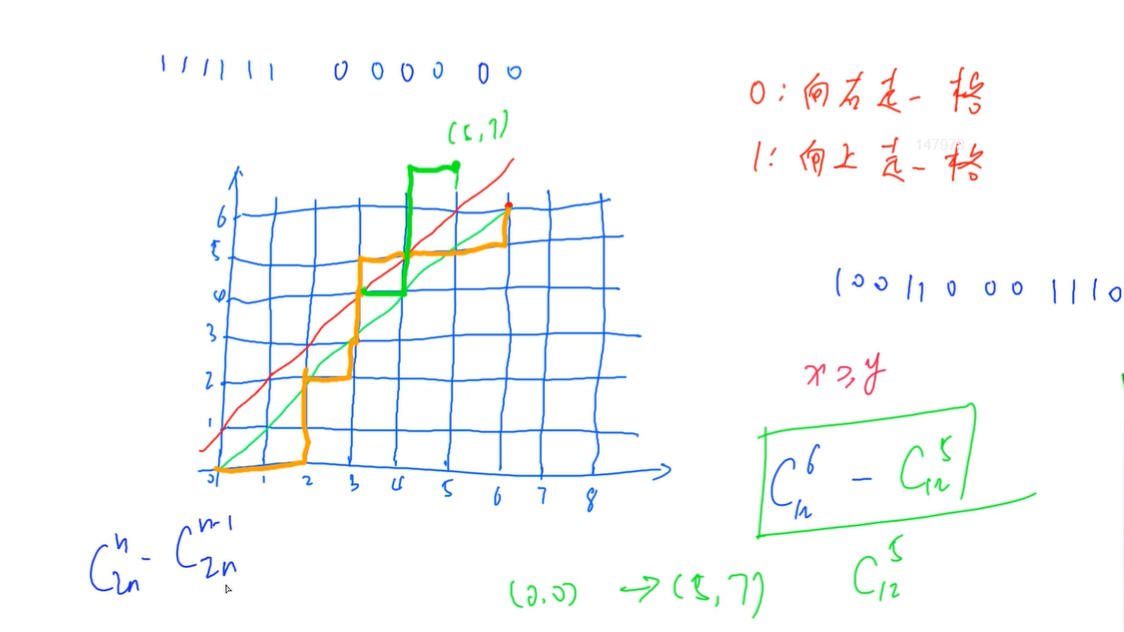 1 1 1 1 1 1 0 0 0 0 0 0
0：向右走一格
1：向上走一格
14797
(5,7)
6
5
4
3
2
1
0 1 2 3 4 5 6 7 8
1 0 0 1 1 0 0 0 1 1 1 0
x ≥ y
C_{12}^{6} - C_{12}^{5}
C_{2n}^{n} - C_{2n}^{n-1}
(0,0) → (5,7) C_{12}^{5}